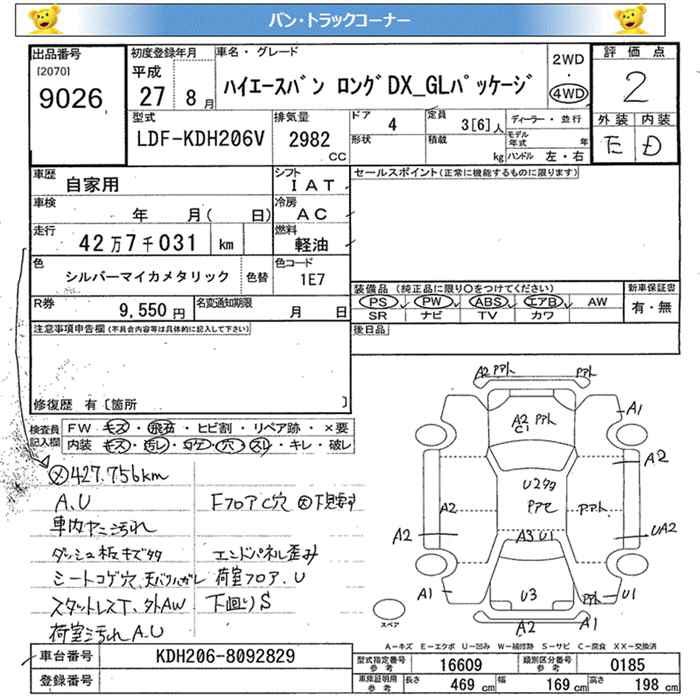 バン・トラックコーナー
出品番号 初度登録年月 車名・グレード 2WD 評価点
[2070] 9026 平成 27 8月 ハイエースバン ロングDX_GLパッケージ ・ 4WD 2
型式 排気量 ドア 4 定員 3[6]人 ディーラー・並行 外装 内装
LDF-KDH206V 2982 CC 形状 積載 kg モデル年式 年 E D
ハンドル 左・右
車歴 自家用 シフト IAT セールスポイント(正常に機能するものに限ります)
車検 年 月( 日) 冷房 AC
走行 42万7千031 km 燃料 軽油
色 シルバーマイカメタリック 色替 色コード 1E7
装備品 (純正品に限り○をつけてください) 新車保証書
R券 9,550円 名変通知期限 月 日 PS PW ABS エアB AW 有・無
SR ナビ TV カワ
注意事項申告欄(不具合内容等は具体的に記入して下さい) 後日品
修復歴 有 [箇所 ]
検査員記入欄 FW キズ・飛石・ヒビ割・リペア跡・×要
内装 キズ・汚レ・コゲ・穴・スレ・キレ・破レ
427.756km
A.U Fフロア C穴
車内ヤニ汚れ
ダッシュ板キズタタ エンドパネル歪み
シートコゲ穴、天バリハガレ 荷室フロア.U
スタットレスT、外AW 下回りS
荷室汚れA.U
A2 アアト アアト
A2 アアト A1
C1
A2
U2タタ
A2 アアセ アアト
A2 A3 U1 UA2
A1 U3 アアト U1
スペア A2 A1
A−キズ E−エクボ U−凹み W−補修跡 S−サビ C−腐食 XX−交換済
車台番号 KDH206-8092829 型式指定番号 参考 16609 類別区分番号 参考 0185
登録番号 車庫証明用 参考 長さ 469cm 幅 169cm 高さ 198cm